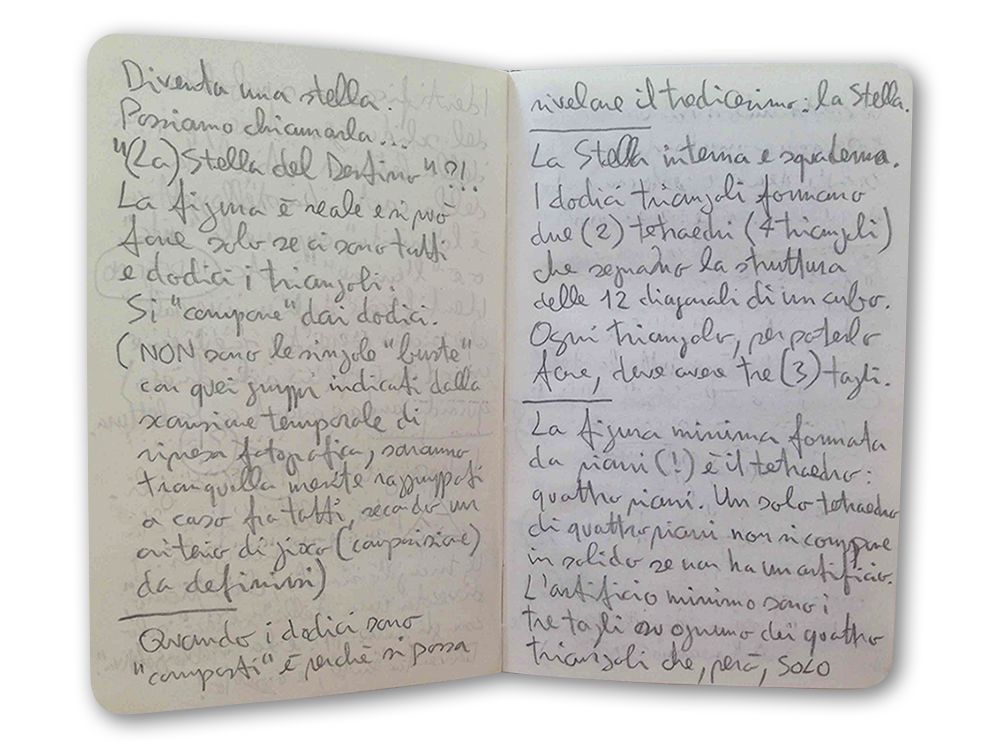 Diventa una stella.
Possiamo chiamarla...
"(La) Stella del Destino"?!
La figura è reale e si può
fare solo se ci sono tutti
e dodici i triangoli.
Si "compone" dai dodici.
(NON sono le singole "buste"
con quei gruppi indicati dalla
scansione temporale di
ripresa fotografica, saranno
tranquilla mente raggruppati
a caso fra tutti, secondo un
criterio di gioco (composizione)
da definirsi)
Quando i dodici sono
"composti" è perchè si possa
rivelare il tredicesimo: la Stella.
La Stella interna e squaderna.
I dodici triangoli formano
due (2) tetraedri (4 triangoli)
che segnano la struttura
delle 12 diagonali di un cubo.
Ogni triangolo, per poterlo
fare, deve avere tre (3) tagli.
La figura minima formata
da piani (!) è il tetraedro:
quattro piani. Un solo tetraedro
di quattro piani non si compone
in solido se non ha un artificio.
L'artificio minimo sono i
tre tagli su ognuno dei quattro
triangoli che, però, SOLO